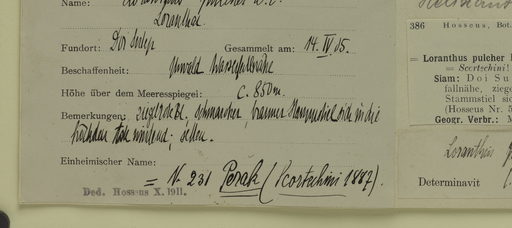 Name: Loranthus pulcher D.C.
Loranthac.
Fundort: Doi Sutep Gesammelt am: 14. IV. 05.
Beschaffenheit: Urwald Wasserfallnähe
Höhe über dem Meeresspiegel: c. 850m.
Bemerkungen: ziegelrote Bl. schmarotzer, brauner Stammstiel sich in die
selten.
Einheimischer Name:
= N. 231 Perak (Scortechini 1887).
Ded. Hosseus X. 1911.
386 Hosseus, Bot.
Loranthus pulcher
= Scortechini!
Siam: Doi Su
fallnähe, ziege
Stammstiel sic
(Hosseus Nr. 5
Geogr. Verbr.: M
Loranthus
Determinavit